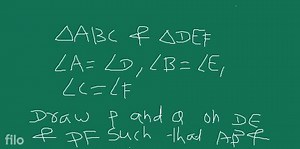 △ABC & △DEF
∠A=∠D, ∠B=∠E,
∠C=∠F
Draw P and Q on DE
& PF Such that AB &
filo